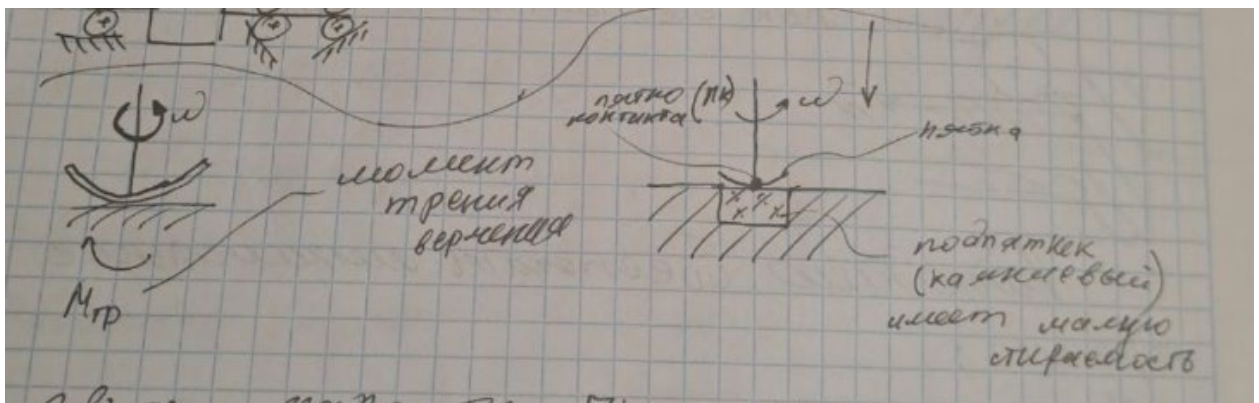 ω
момент
трения
верчения
Mтр
пятно (ПК)
контакта
ω
пятка
подпятник
(камниевый)
имеет малую
стираемость